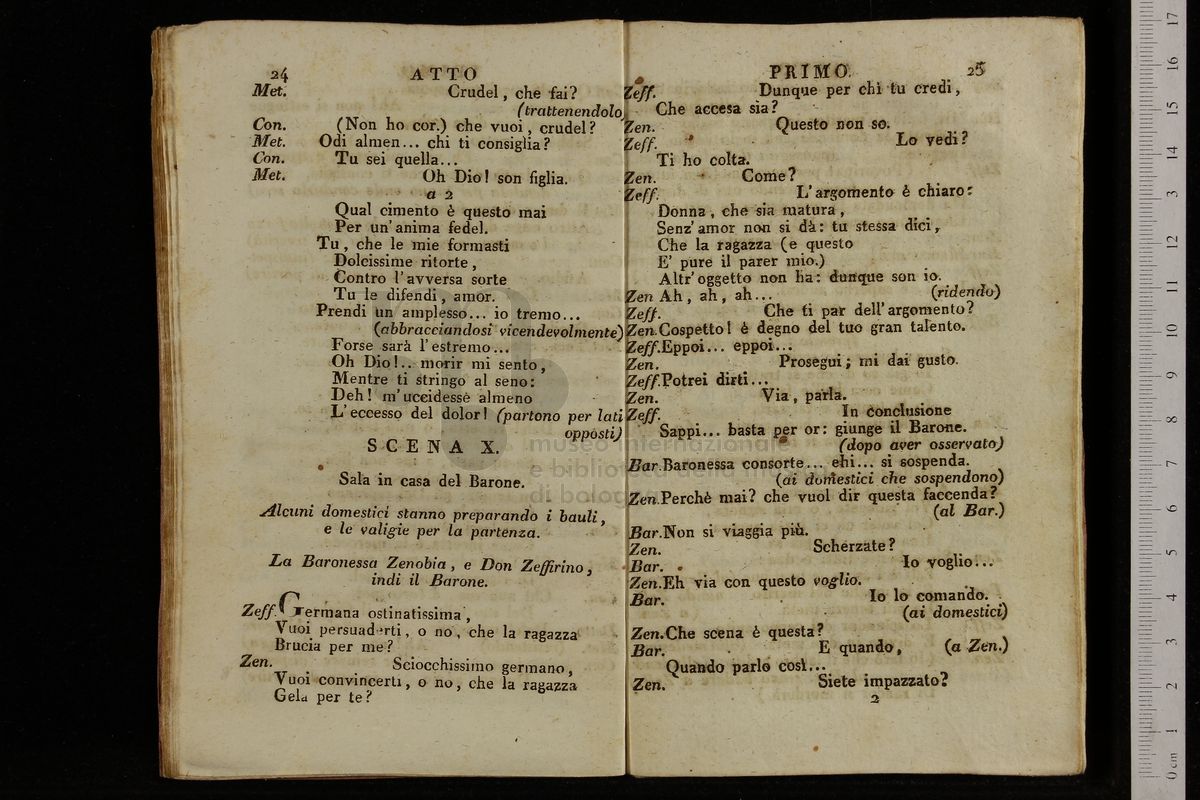 24 ATTO
Met. Crudel, che fai?
(trattenendolo)
Con. (Non ho cor.) che vuoi, crudel?
Met. Odi almen... chi ti consiglia?
Con. Tu sei quella...
Met. Oh Dio! son figlia.
a 2
Qual cimento è questo mai
Per un'anima fedel.
Tu, che le mie formasti
Dolcissime ritorte,
Contro l'avversa sorte
Tu le difendi, amor.
Prendi un amplesso... io tremo...
(abbracciandosi vicendevolmente)
Forse sarà l'estremo...
Oh Dio!.. morir mi sento,
Mentre ti stringo al seno:
Deh! m'uccidesse almeno
L'eccesso del dolor! (partono per lati
opposti)
SCENA X.
Sala in casa del Barone.
Alcuni domestici stanno preparando i bauli,
e le valigie per la partenza.
La Baronessa Zenobia, e Don Zeffirino,
indi il Barone.
Zeff. Germana ostinatissima,
Vuoi persuaderti, o no, che la ragazza
Brucia per me?
Zen. Sciocchissimo germano,
Vuoi convincerti, o no, che la ragazza
Gela per te?
PRIMO. 25
Zeff. Dunque per chi tu credi,
Che accesa sia?
Zen. Questo non so.
Zeff. Lo vedi?
Ti ho colta.
Zen. Come?
Zeff. L'argomento è chiaro:
Donna, che sia matura,
Senz'amor non si dà: tu stessa dici,
Che la ragazza (e questo
E' pure il parer mio.)
Altr'oggetto non ha: dunque son io.
Zen Ah, ah, ah... (ridendo)
Zeff. Che ti par dell'argomento?
Zen. Cospetto! è degno del tuo gran talento.
Zeff. Eppoi... eppoi...
Zen. Prosegui; mi dai gusto.
Zeff. Potrei dirti...
Zen. Via, parla.
Zeff. In conclusione
Sappi... basta per or: giunge il Barone.
(dopo aver osservato)
Bar. Baronessa consorte... ehi... si sospenda.
(ai domestici che sospendono)
Zen. Perchè mai? che vuol dir questa faccenda?
(al Bar.)
Bar. Non si viaggia più.
Zen. Scherzate?
Bar. Io voglio...
Zen. Eh via con questo voglio.
Bar. Io lo comando.
(ai domestici)
Zen. Che scena è questa?
Bar. E quando, (a Zen.)
Quando parlo così...
Zen. Siete impazzato?
2
museo internazionale
e biblioteca della musica
di bologna
0 cm 1 2 3 4 5 6 7 8 9 10 11 12 13 14 15 16 17